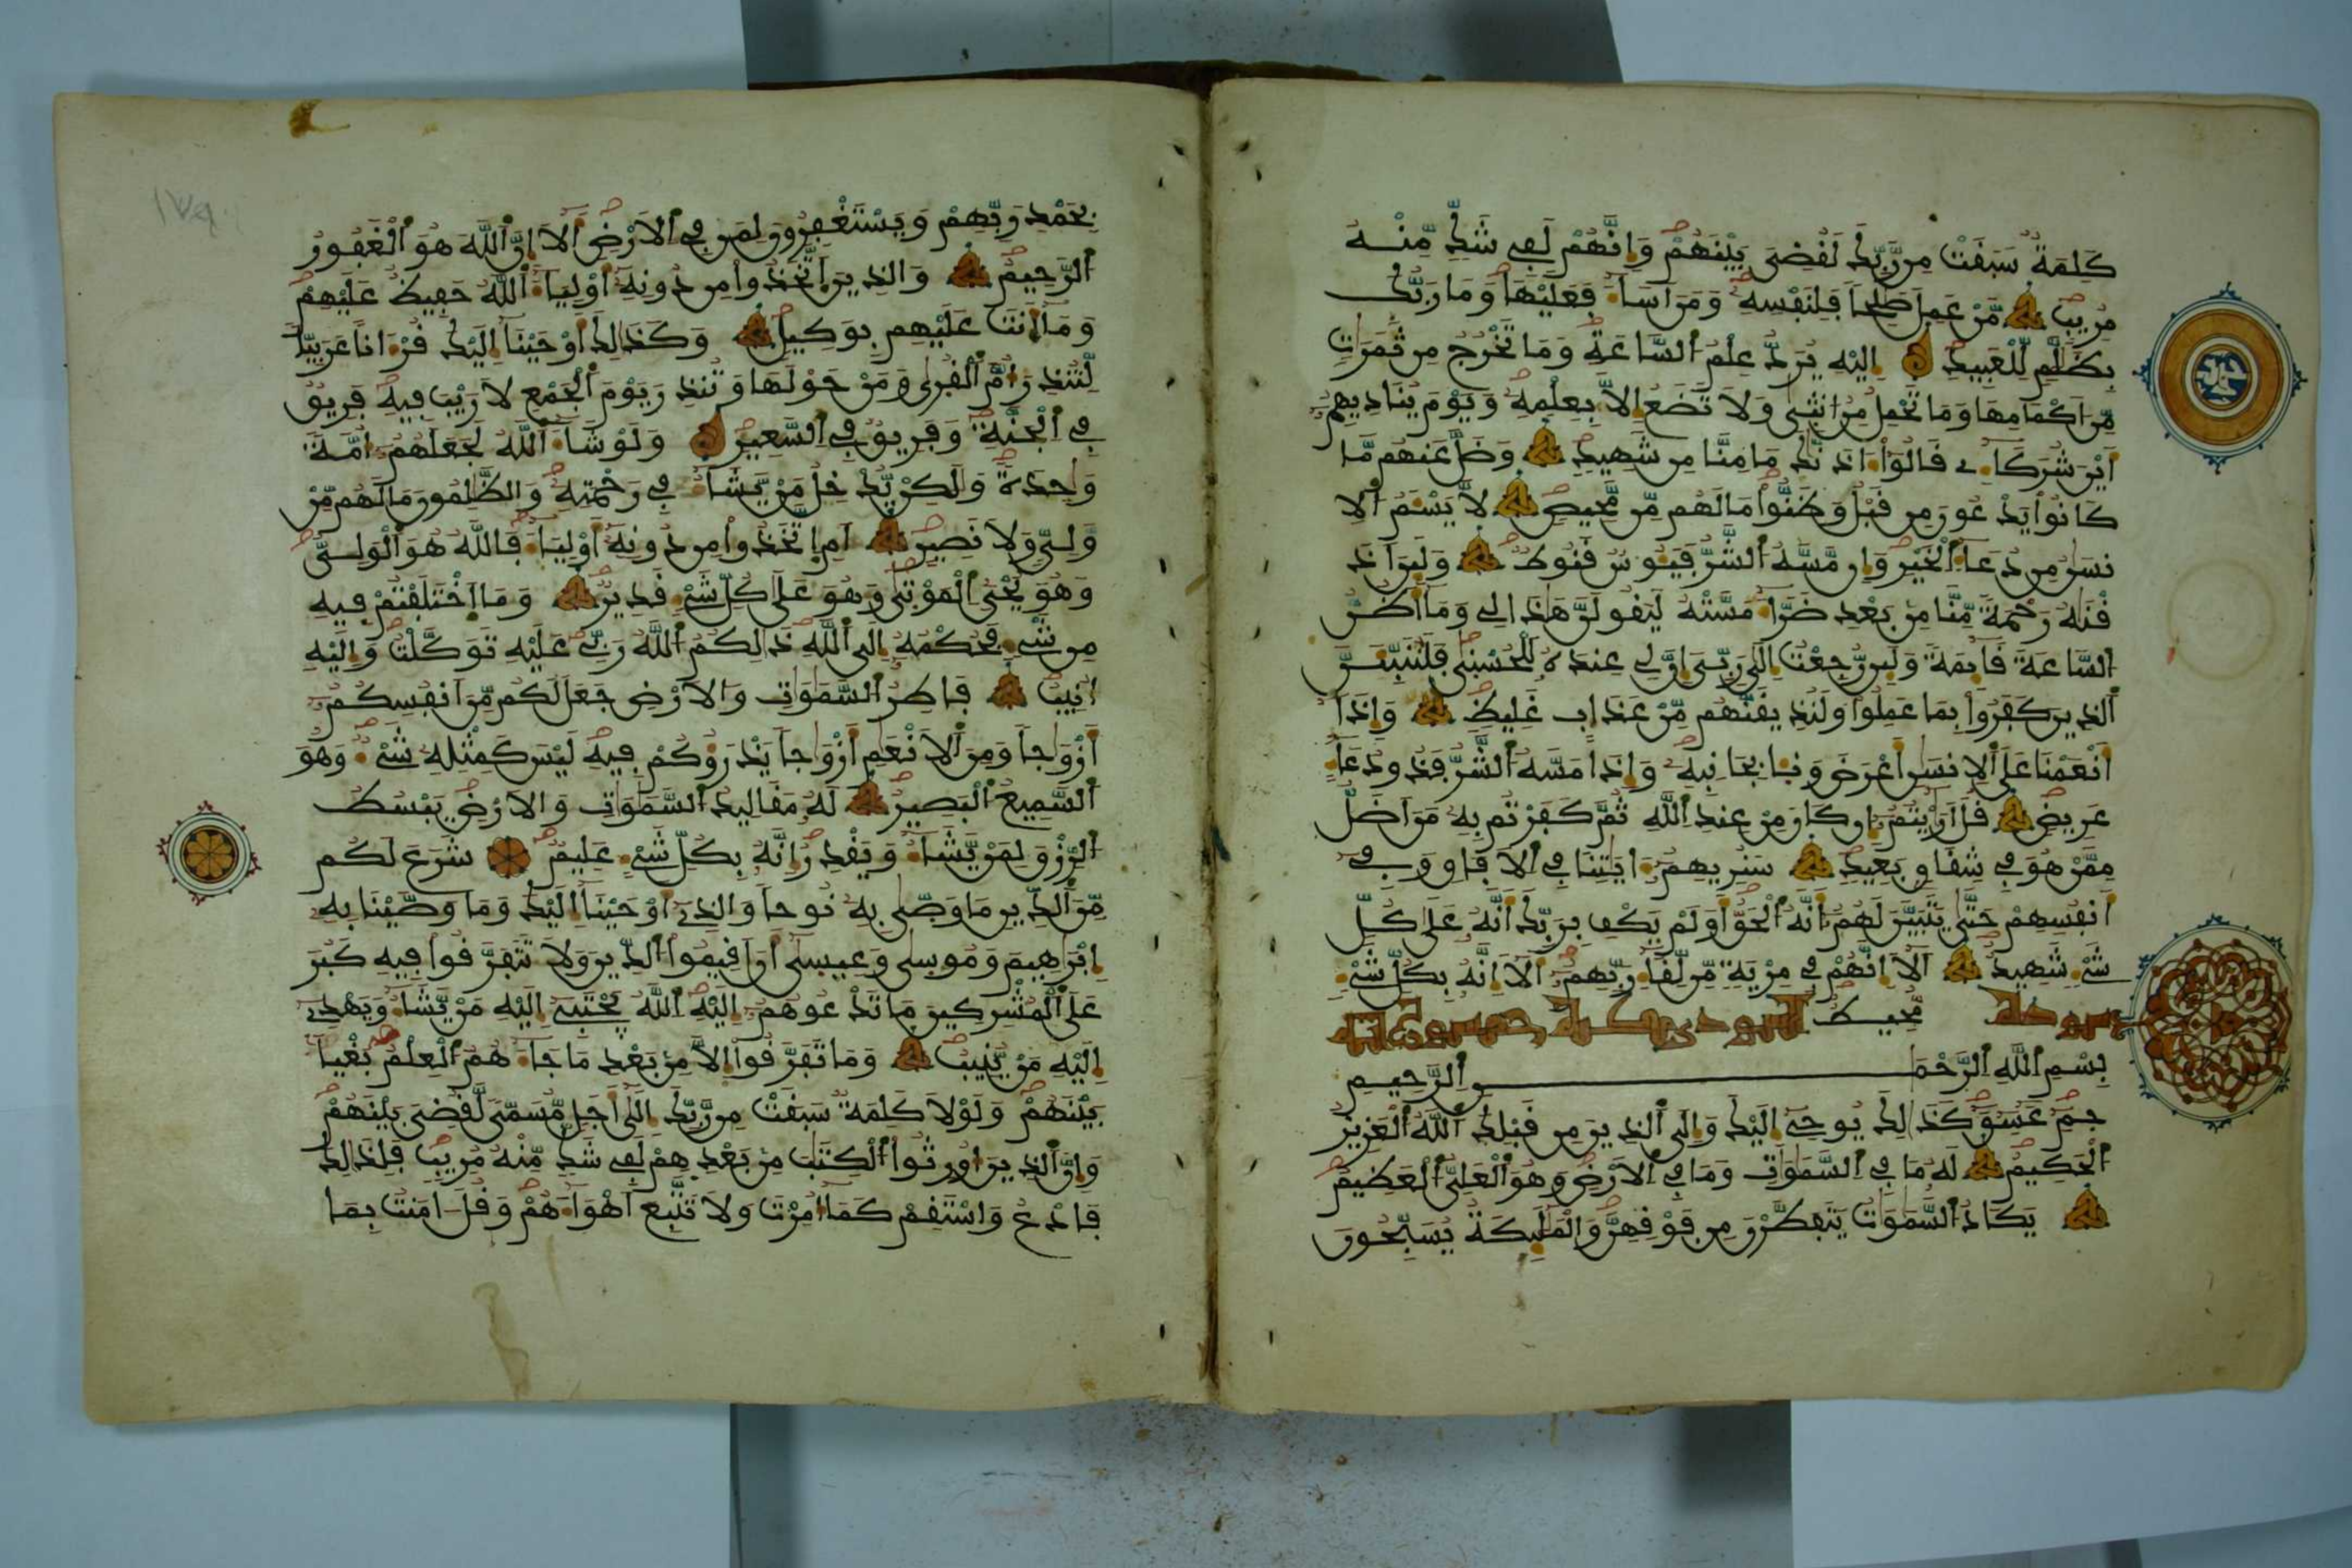 كلمة سبقت من ربك لقضي بينهم وإنهم لفي شك منه
مريب من عمل صلحا فلنفسه ومن اساء فعليها وما ربك
بظلم للعبيد إليه يرد علم الساعة وما تخرج من ثمرات
من اكمامها وما تحمل من انثى ولا تضع إلا بعلمه ويوم يناديهم
أين شركاءي قالوا ءاذنك ما منا من شهيد وضل عنهم ما
كانوا يدعون من قبل وظنوا ما لهم من محيص لا يسئم الا
نسن من دعاء الخير وإن مسه الشر فيئوس قنوط ولئن اذ
قنه رحمة منا من بعد ضراء مسته ليقولن هذا لي وما أظن
الساعة قائمة ولئن رجعت إلى ربي إن لي عنده للحسنى فلننبئن
الذين كفروا بما عملوا ولنذيقنهم من عذاب غليظ وإذا
أنعمنا على الانسن أعرض ونئا بجانبه وإذا مسه الشر فذو دعاء
عريض قل أريتم إن كان من عند الله ثم كفرتم به من اضل
ممن هو في شقاق بعيد سنريهم ءايتنا في الافاق وفي
أنفسهم حتى يتبين لهم أنه الحق أولم يكف بربك أنه على كل
شيء شهيد ألا إنهم في مرية من لقاء ربهم ألا إنه بكل شيء
سورة محيط الشورى مكية خمسون آية
بسم الله الرحمن الرحيم
حم عسق كذلك يوحي إليك وإلى الذين من قبلك الله العزيز
الحكيم له ما في السموات وما في الارض وهو العلي العظيم
يكاد السموات يتفطرن من فوقهن والملئكة يسبحون
بحمد ربهم ويستغفرون لمن في الارض ألا إن الله هو الغفور
الرحيم والذين اتخذوا من دونه أولياء الله حفيظ عليهم
وما أنت عليهم بوكيل وكذلك أوحينا إليك قرءانا عربيا
لتنذر أم القرى ومن حولها وتنذر يوم الجمع لا ريب فيه فريق
في الجنة وفريق في السعير ولو شاء الله لجعلهم أمة
واحدة ولكن يدخل من يشاء في رحمته والظلمون ما لهم من
ولي ولا نصير أم اتخذوا من دونه أولياء فالله هو الولي
وهو يحي الموتى وهو على كل شيء قدير وما اختلفتم فيه
من شيء فحكمه إلى الله ذلكم الله ربي عليه توكلت وإليه
أنيب فاطر السموات والارض جعل لكم من انفسكم
أزواجا ومن الانعم أزواجا يذرؤكم فيه ليس كمثله شيء وهو
السميع البصير له مقاليد السموات والارض يبسط
الرزق لمن يشاء ويقدر إنه بكل شيء عليم شرع لكم
من الدين ما وصى به نوحا والذي أوحينا إليك وما وصينا به
إبراهيم وموسى وعيسى أن اقيموا الدين ولا تتفرقوا فيه كبر
على المشركين ما تدعوهم إليه الله يجتبي إليه من يشاء ويهدي
إليه من ينيب وما تفرقوا إلا من بعد ما جاءهم العلم بغيا
بينهم ولولا كلمة سبقت من ربك إلى أجل مسمى لقضي بينهم
وإن الذين أورثوا الكتب من بعدهم لفي شك منه مريب فلذلك
فادع واستقم كما أمرت ولا تتبع أهواءهم وقل ءامنت بما